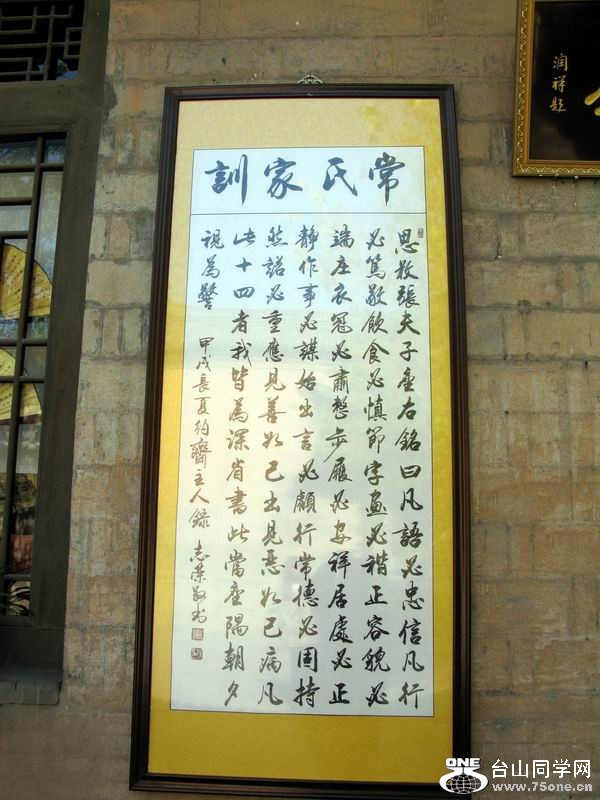 常氏家訓
思叔張夫子座右銘曰凡語必忠信凡行
必篤敬飲食必慎節字畫必楷正容貌必
端座衣冠必肅整步履必安祥居處必正
靜作事必謀始出言必顧行常德必固持
然諾必重應見善如己出見惡如己病凡
此十四者我皆為深省書此當座隅朝夕
視為警
甲戌長夏約齋主人錄
志榮敬书
润祥题
ONE
台山同学网
www.75one.cn